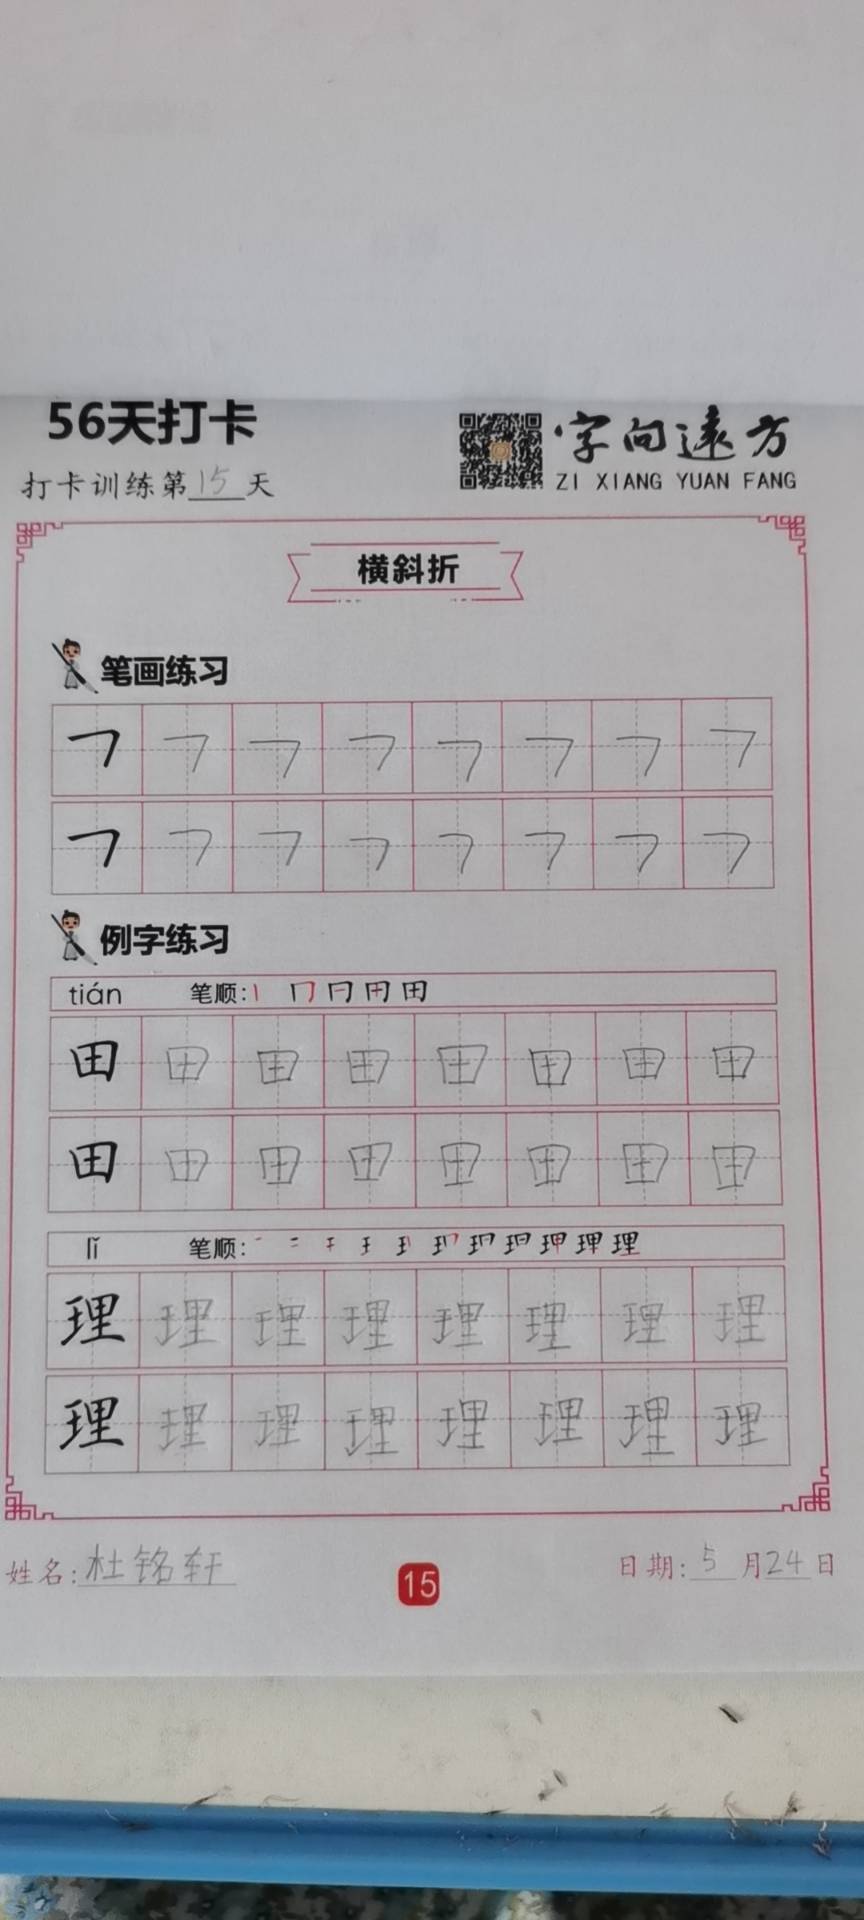 56天打卡
字向远方
打卡训练第15天
ZI XIANG YUAN FANG
横斜折
笔画练习
㇇ ㇇ ㇇ ㇇ ㇇ ㇇ ㇇ ㇇
㇇ ㇇ ㇇ ㇇ ㇇ ㇇ ㇇ ㇇
例字练习
tián 笔顺:
田 田 田 田 田 田 田 田
田 田 田 田 田 田 田 田
lǐ 笔顺:
理 理 理 理 理 理 理 理
理 理 理 理 理 理 理 理
姓名:杜铭轩
15
日期:5月24日